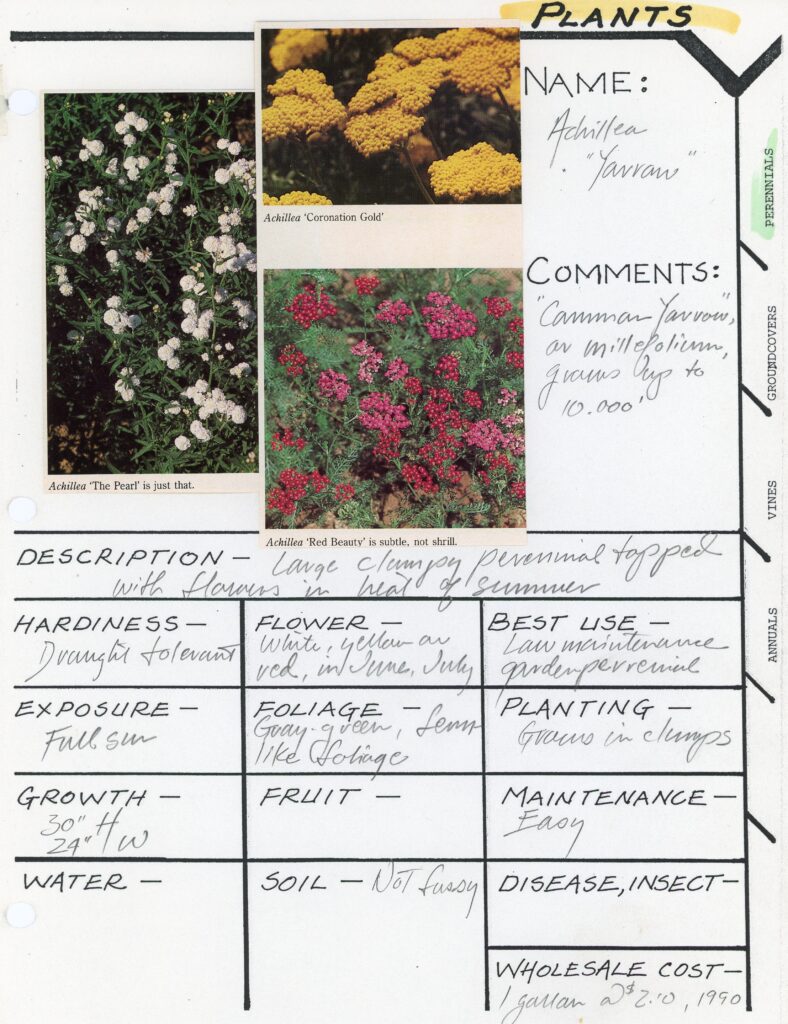 PLANTS
NAME:
Achillea
"Yarrow"
Achillea 'Coronation Gold'
COMMENTS:
"Common Yarrow",
or millefolium,
grows up to
10.000'
Achillea 'The Pearl' is just that.
Achillea 'Red Beauty' is subtle, not shrill.
PERENNIALS
GROUNDCOVERS
VINES
ANNUALS
DESCRIPTION — Large clumpy perennial topped
with flowers in heat of summer
HARDINESS —
Drought tolerant
FLOWER —
White, yellow or
red, in June, July
BEST USE —
Low maintenance
garden perennial
EXPOSURE —
Full sun
FOLIAGE —
Gray-green, fern
like foliage
PLANTING —
Grows in clumps
GROWTH —
30" H
24" W
FRUIT —
MAINTENANCE —
Easy
WATER —
SOIL — Not fussy
DISEASE, INSECT —
WHOLESALE COST —
1 gallon @ $2.10, 1990